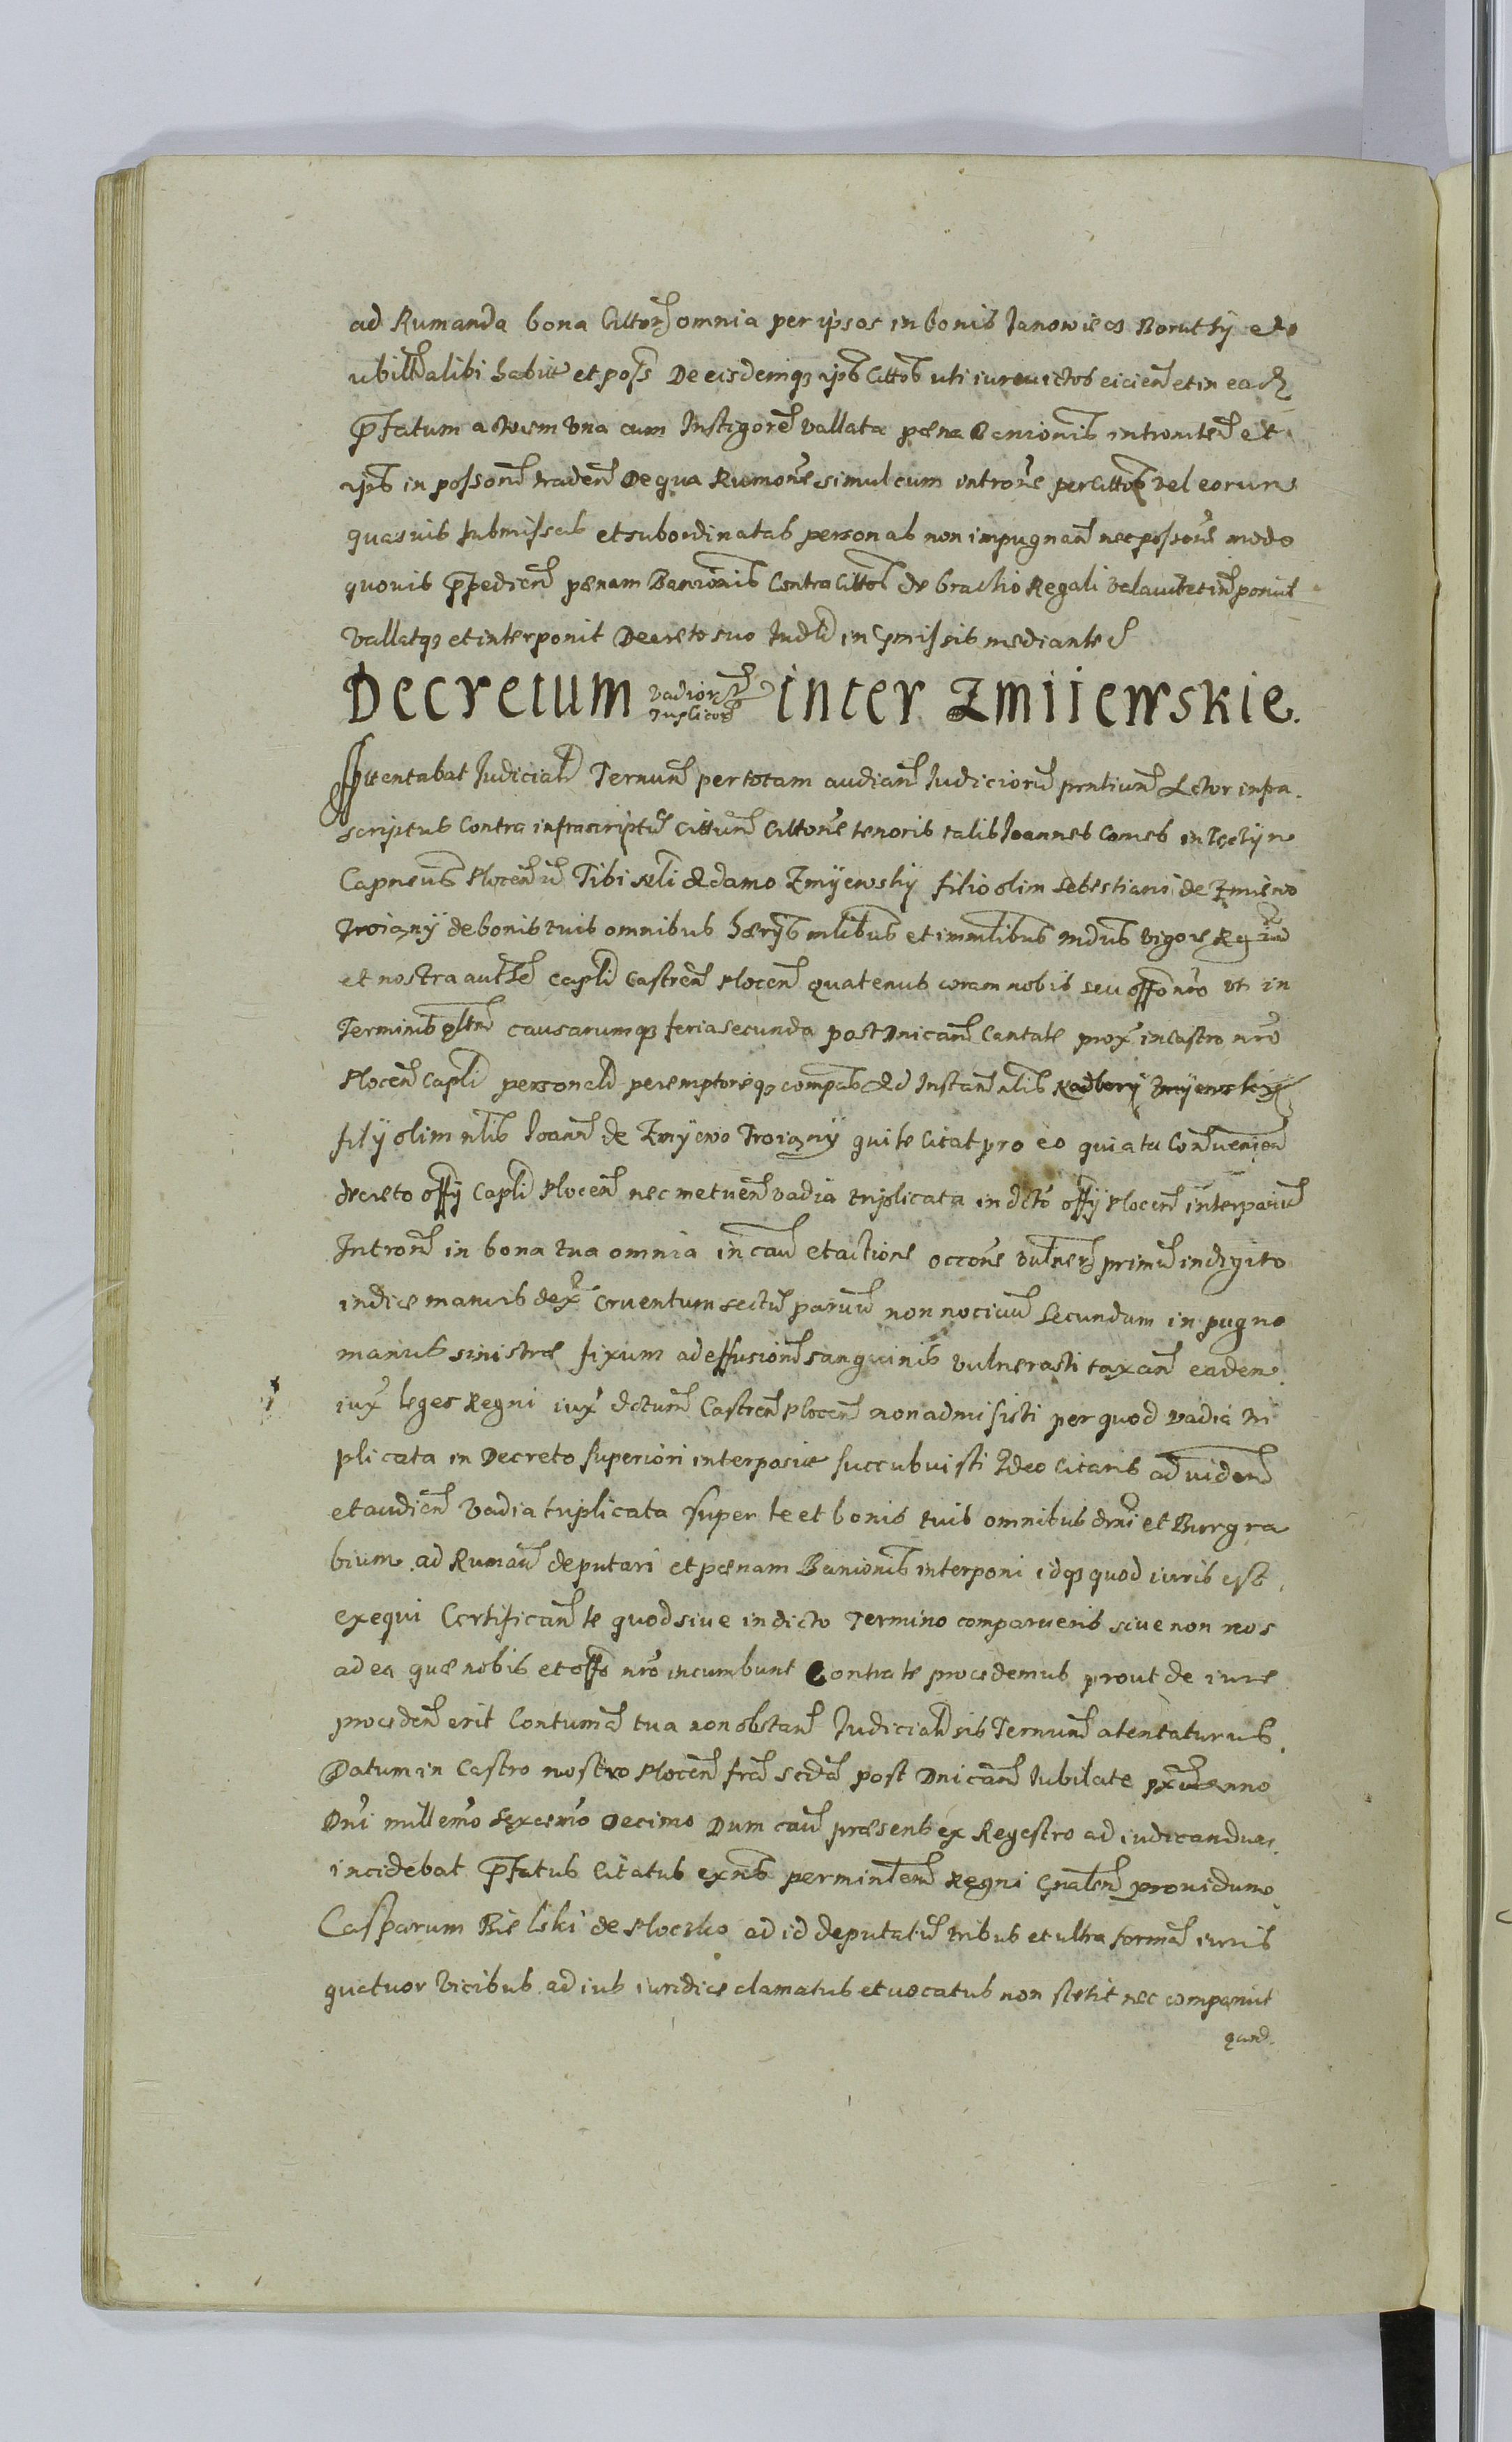 ad Rumanda bona Cittor omnia per ipsos in bonis Janowiecz Boruthy et
ubilt alibi habit et poss De eisdemq ips Cittos uti iurevictos eicien et in ea
pfatum actorem una cum Instigore vallata pœna Banionis intromitten et
ips in posson traden De qua Rumone simul cum introne per Cittos vel eorum
quasvis submissas et subordinatas personas non impugnan nec possone modo
quovis ppedien pœnam Banionis Contra Cittos de brachio Regali
vallatq et interponit Decreto suo Judli in pmissis mediante
Decretum vadior triplicor inter Zmiiewskie.
Attentabat Judicialr Termin per totam audian Judicior pntium Actor infra
scriptus Contra infrascriptu Cittum Cittone tenoris talis Joannes Comes in Tęczyn
Capneus Plocen Tibi nli Adamo Zmijewsky filio olim Sebestiani de Zmiewo
Troiany de bonis tuis omnibus hærijs mlibus et immlibus Mdus vigore Regia
et nostra autte capli Castren Plocen quatenus coram nobis seu offo nro uti in
Terminis qltm causarumq feria secunda post Dnicam Cantate prox in Castro nro
Plocen Capli personalr peremptorieq compas Ad Instan nlis
filij olim nlis Joann de Zmijewo Troiany qui te Citat pro eo quia tu Conveniens
decreto offij Capli Plocen nec metuen vadia triplicata in dcto offij Plocen interposit
Intron in bona tua omnia in cau et actione occone vulner primu in digito
indice manus dex cruentum sectu parvu non nocivu Secundum in pugno
manus sinistræ fixum ad effusion sanguinis vulnerasti taxan eadem
iux leges Regni iux dctum Castren Plocen non admisisti per quod vadia tri
plicata in Decreto superiori interposit succubuisti Ideo Citaris ad viden
et audien Vadia triplicata super te et bonis tuis omnibus drni et Burgra
bium ad Ruman deputari et pœnam Banionis interponi idq quod iuris est
exequi Certifican te quod sive in dicto Termino comparueris sive non nos
ad ea quæ nobis et offo nro incumbunt Contra te procedemus prout de iure
proceden erit Contuma tua non obstan Judicialr sis Termin atentaturus
Datum in Castro nostro Plocen fria scda post Dnicam Jubilate prx Anno
Dni millemo Sexcenmo Decimo Dum cau præsens ex Regestro ad iudicandum
incidebat pfatus Citatus exns per minlem Regni Gnalem providum
Casparum Bielski de Plocsko ad id deputatu tribus et ultra forma iuris
quatuor vicibus ad ius iuridice clamatus et vocatus non stetit nec comparuit
quod.